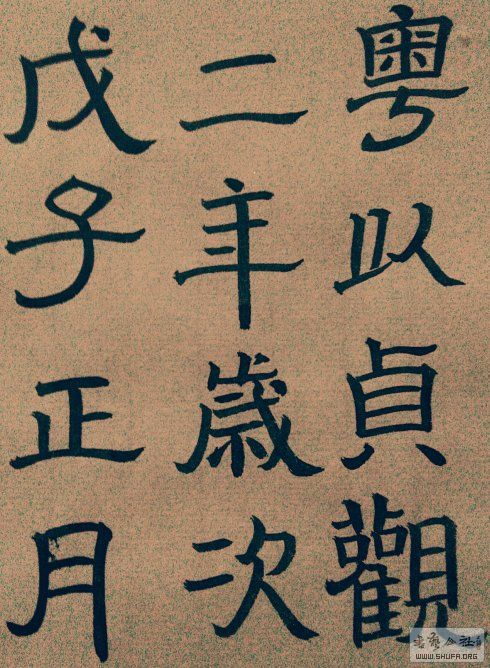 粤以貞觀
二年歲次
戊子正月
WWW.SHUFA.ORG